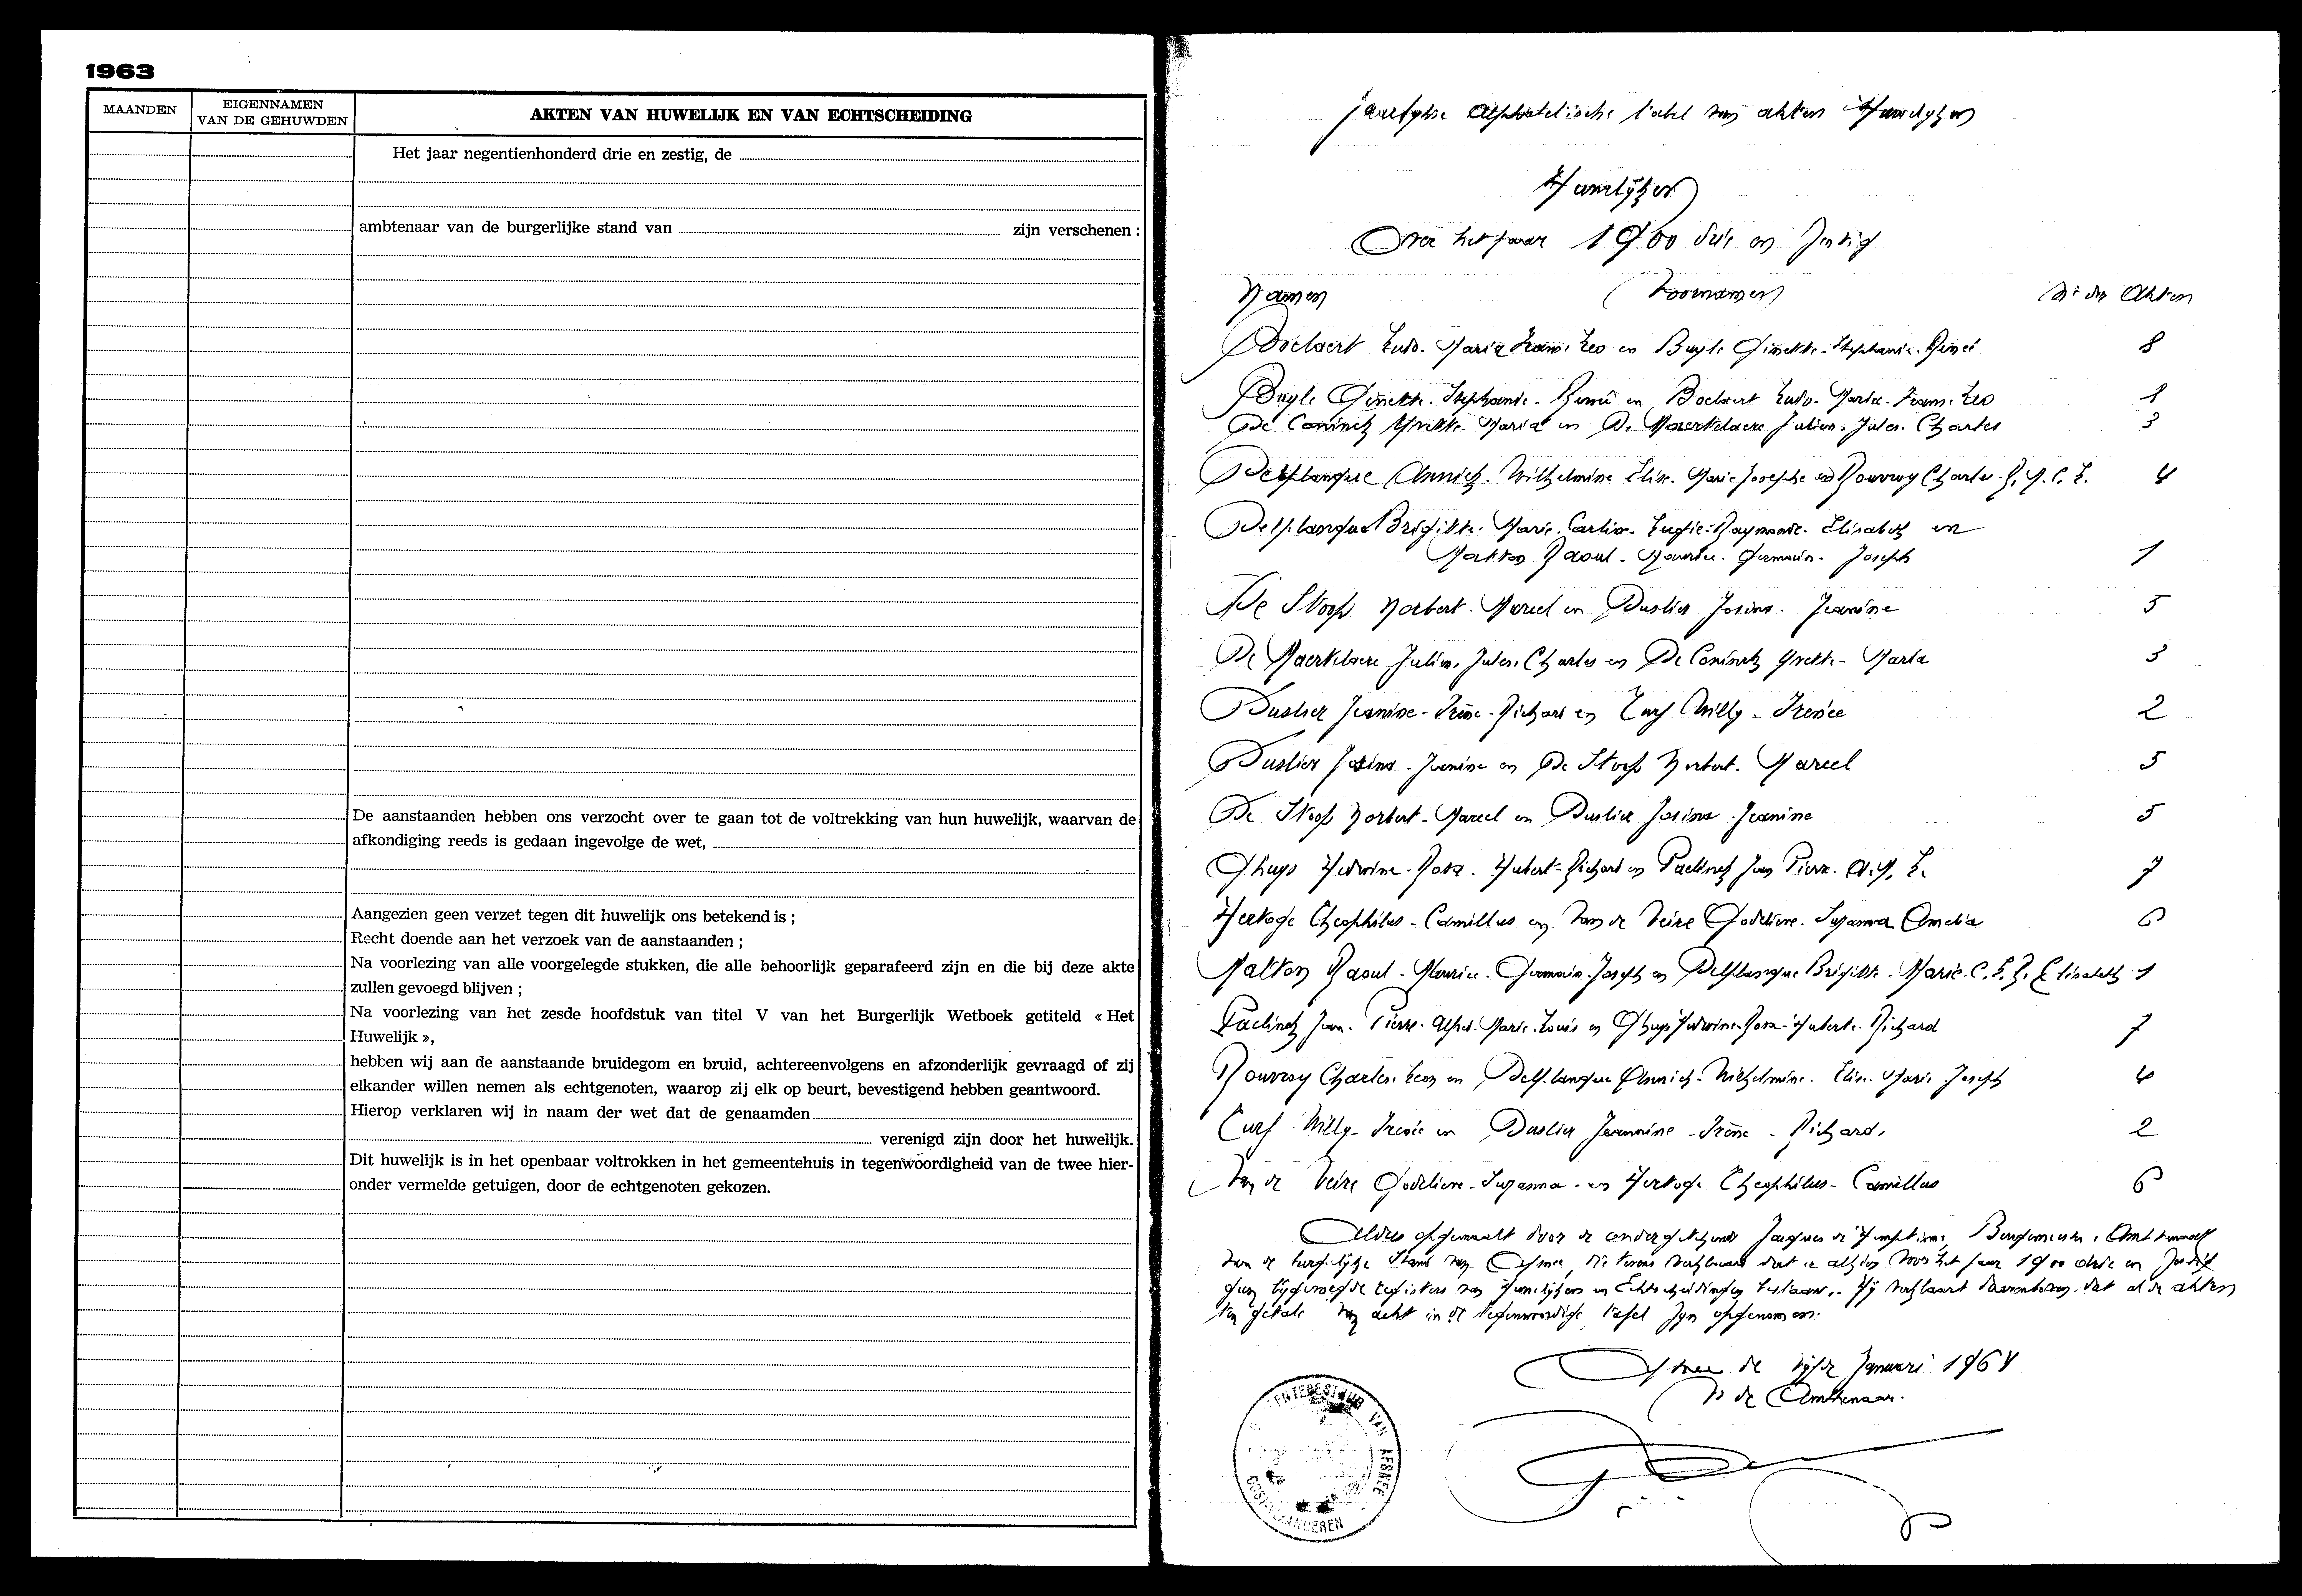 1963
MAANDEN
EIGENNAMEN
VAN DE GEHUWDEN
AKTEN VAN HUWELIJK EN VAN ECHTSCHEIDING
Het jaar negentienhonderd drie en zestig, de
ambtenaar van de burgerlijke stand van zijn verschenen :
De aanstaanden hebben ons verzocht over te gaan tot de voltrekking van hun huwelijk, waarvan de
afkondiging reeds is gedaan ingevolge de wet,
Aangezien geen verzet tegen dit huwelijk ons betekend is ;
Recht doende aan het verzoek van de aanstaanden ;
Na voorlezing van alle voorgelegde stukken, die alle behoorlijk geparafeerd zijn en die bij deze akte
zullen gevoegd blijven ;
Na voorlezing van het zesde hoofdstuk van titel V van het Burgerlijk Wetboek getiteld « Het
Huwelijk »,
hebben wij aan de aanstaande bruidegom en bruid, achtereenvolgens en afzonderlijk gevraagd of zij
elkander willen nemen als echtgenoten, waarop zij elk op beurt, bevestigend hebben geantwoord.
Hierop verklaren wij in naam der wet dat de genaamden
verenigd zijn door het huwelijk.
Dit huwelijk is in het openbaar voltrokken in het gemeentehuis in tegenwoordigheid van de twee hier-
onder vermelde getuigen, door de echtgenoten gekozen.
Alphabetische tabel van akten Huwelijken
Huwelijken
Over het jaar 1900 drie en zestig
Namen Voornamen Nr der Akten
Boelaert Ludo. Maria Frans. Leo en Buyle Ginette. Stephanie. Renée 8
Buyle Ginette. Stephanie. Renée en Boelaert Ludo. Maria. Frans. Leo 8
De Coninck Yvette. Maria en De Maerkelaere Julien. Jules. Charles 3
Delplanque Annick. Wilhelmine Elise. Marie Josephe en Rouvroy Charles. 4
Delplanque Brigitte. Marie. Raymonde. Elisabeth en
Matton Raoul. Maurice. Germain. Joseph 1
De Stoop Norbert. Marcel en Buslier Josina. Jeanine 5
De Maerkelaere Julien. Jules. Charles en De Coninck Yvette. Maria 3
Buslier Jeanine. Irène. Richard en Turf Willy. Irenée 2
Buslier Josina. Jeanine en De Stoop Norbert. Marcel 5
De Stoop Norbert. Marcel en Buslier Josina Jeanine 5
Ghuys Hedwine. Rosa. Hubert. Richard en Paelinck Jean Pierre. 7
Hertoge Theophilus. Camillus en Van de Veire Godelieve. Suzanna Amelia 6
Matton Raoul. Maurice. Germain. Joseph en Delplanque Brigitte. Marie. Elisabeth 1
Paelinck Jean. Pierre. Alfred. Marie. Louis en Ghuys Hedwine. Rosa. Huberte. Richard 7
Rouvroy Charles. Leon en Delplanque Annick. Wilhelmine. Elise. Marie Joseph 4
Turf Willy. Irenée en Buslier Jeannine. Irène. Richard. 2
Van de Veire Godelieve. Suzanna. en Hertoge Theophilus. Camillus 6
Aldus opgemaakt door de ondergetekende Jacques de Burgemeester, Ambtenaar
van de burgelijke Stand van Afsnee, voor het jaar 1900 drie en zestig
registers van Huwelijken en Echtscheidingen bestaan. Hij verklaart daarenboven dat al de akten
ten getale van acht in de tegenwoordige tafel zijn opgenomen.
Afsnee de vijfde Januari 1964
De Ambtenaar.
VAN AFSNEE